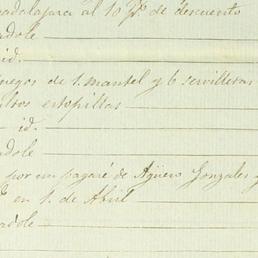 adalajara al 10 p% de descuento
adole
id.
uegos de 1. mantel y 6 servilletas
ultos estopillas
id.
adole
por un pagaré de Agüero Gonzales y
en 1. de Abril
adole